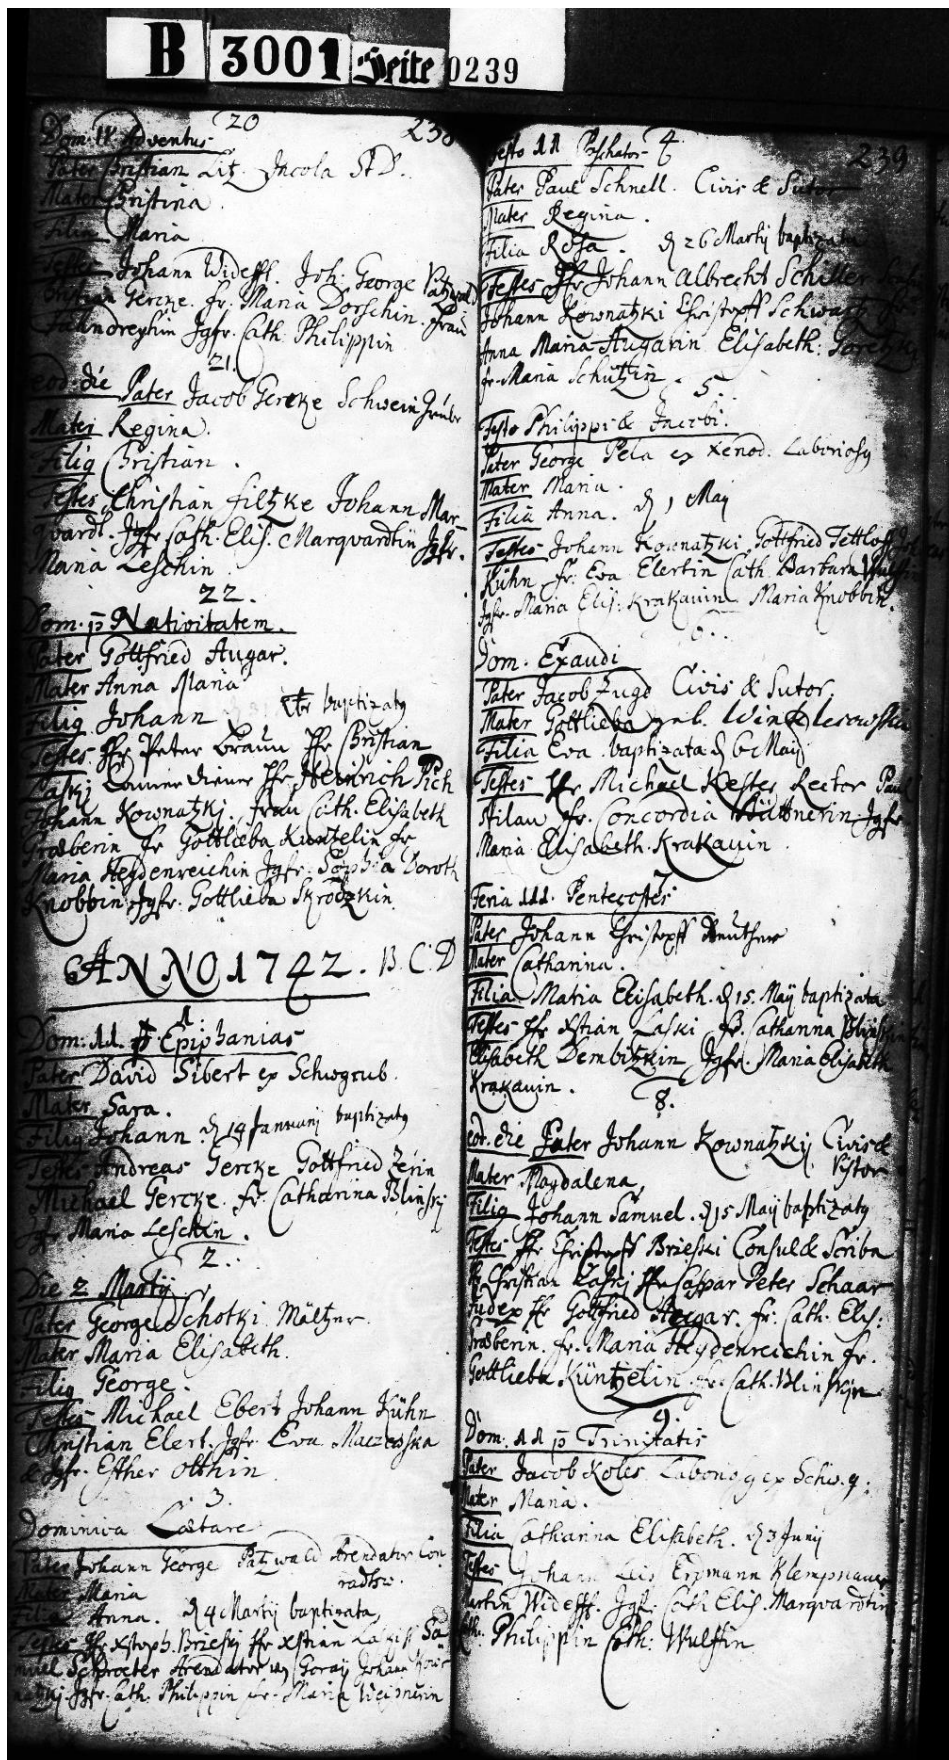 B 3001 Seite 0239
20 238
Dom. IV. Adventus
Pater Christian Litz. Incola StD.
Mater Christina
Filia Maria
Testes Johann Wideff. Joh: George Patzwald
Christian Gercke. fr. Maria Dorschin. frau
Fahndreyhin Jgfr. Cath: Philippin
21.
eod. die Pater Jacob Gercke
Mater Regina.
Filig Christian.
Testes Christian filtzke Johann Mar-
qvardt. Jgfr Cath. Elis. Marqvardtin Jgfr.
Maria Leschin
22.
Dom. p Nativitatem.
Pater Gottfried Augar.
Mater Anna Maria
Filig Johann baptizatg
Testes Hr Peter Braun Hr Christian
Laski Hr Heinrich Pich
Johann Kownatzki. frau Cath. Elisabeth
Græberin fr Gottlieba Kuntzelin fr
Maria Heydenreichin Jgfr. Sophia Doroth
Knobbin Jgfr. Gottlieba Skrodzkin.
ANNO 1742. B. C. D
1.
Dom: 11. p Epiphanias
Pater David Sibert ex Schwgrub.
Mater Sara.
Filig Johann. d 14 Januarij baptizatg
Testes Andreas Gercke Gottfried Zerin
Michael Gercke. fr. Catharina Blinsky
Jgfr Maria Leschin.
2.
Die 2 Martij
Pater George Schotki Mältzer.
Mater Maria Elisabeth.
Filig George.
Testes Michael Ebert Johann Kühn
Christian Elert. Jgfr. Eva Maczewska
& Jgfr. Esther Olthin
3.
Dominica Lætare
Pater Johann George Patzwald Arendator Con-
radsw.
Mater Maria
Filia Anna. d 4 Martij baptizata,
Testes Hr Xstoph. Brzeski Hr Xstian Laski Sa-
muel Schroeter Arendator in Goray Johann Kow-
natzki Jgfr. Cath. Philippin fr. Maria
4 239
Festo 11 Paschatos
Pater Paul Schnell. Civis & Sutor
Mater Regina.
Filia Rosa. d 26 Martij baptizata
Testes Hr Johann Albrecht Schiller
Johann Kownatzki Christoff Schwartz
Anna Maria Augarin Elisabeth:
fr. Maria Schützin.
5.
Festo Philippi & Jacobi.
Pater George Pela ex Xenod. Laboriosg
Mater Maria.
Filia Anna. d 1 May
Testes Johann Kownatzki Gottfried Tettloff
Kühn fr. Eva Elertin Cath. Barbara
Jgfr. Maria Elis: Krakauin Maria Knobbin.
6.
Dom. Exaudi
Pater Jacob Zugd Civis & Sutor,
Mater Gottlieba geb. Winklerowska
Filia Eva baptizata d 6 Maij
Testes Hr Michael Kester Rector Paul
Stilau fr. Concordia Büttnerin Jgfr
Maria Elisabeth Krakauin
7
Feria 111. Pentecostes
Pater Johann Christoff
Mater Catharina.
Filia Maria Elisabeth. d 15. Maij baptizata
Testes Hr Xstian Laski fr. Catharina Blinskin
Elisabeth Dembitzkin Jgfr. Maria Elisabeth
Krakauin.
8.
eod. die Pater Johann Kownatzky Civis &
Pistor
Mater Magdalena,
Filig Johann Samuel. d 15 Maij baptizatg
Testes Hr Christoff Brzeski Consul & Scriba
Hr Christian Laski Hr Caspar Peter Schaar
Judex Hr Gottfried Augar. fr. Cath. Elis:
Græberin. fr. Maria Heydenreichin fr.
Gottlieba Küntzelin fr. Cath. Blinskin
9.
Dom. 11 p Trinitatis
Pater Jacob Koles Laboriosg ex Schw. g.
Mater Maria.
Filia Catharina Elisabeth. d 3 Junij
Testes Johann Leis Erdmann Klempnauer
Martin Wideff. Jgfr. Cath Elis. Marqvardtin
Philippin Cath: Wulffin